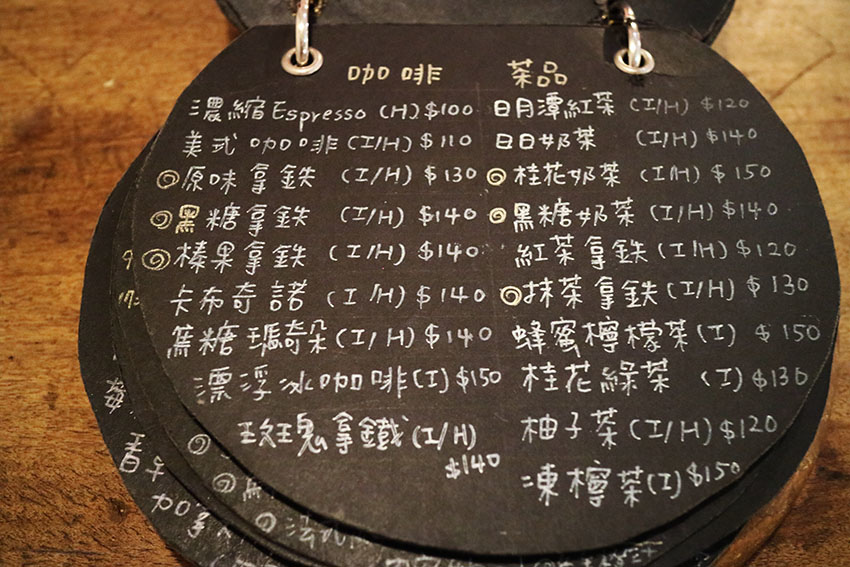 咖啡
濃縮Espresso (H) $100
美式咖啡 (I/H) $110
原味拿鉄 (I/H) $130
黑糖拿鉄 (I/H) $140
榛果拿鉄 (I/H) $140
卡布奇諾 (I/H) $140
蔗糖瑪奇朵 (I/H) $140
漂浮冰咖啡(I) $150
玫瑰拿鐵(I/H)
$140
茶品
日月潭紅茶 (I/H) $120
日日奶茶 (I/H) $140
桂花奶茶 (I/H) $150
黑糖奶茶 (I/H) $140
紅茶拿鉄 (I/H) $120
抹茶拿鉄 (I/H) $130
蜂蜜檸檬茶(I) $150
桂花綠茶 (I) $130
柚子茶 (I/H) $120
凍檸茶(I) $150